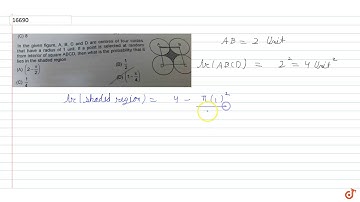 16690
(C) 8
In the given figure, A, B, C and D are centres of four circles
that have a radius of 1 unit. If a point is selected at random
from interior of square ABCD, then what is the probability that it
lies in the shaded region
(A)
(B)
(C)
(D)
AB = 2 Unit
ar (ABCD) = 2² = 4 Unit²
ar (shaded region) = 4 - π(1)²